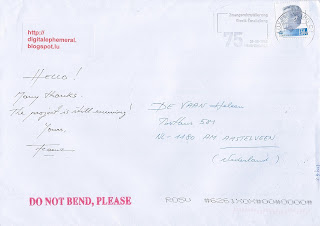 http://
digitalephemeral.
blogspot.lu
75
Hello!
Many thanks.
The project is still running!
Yours,
DE VAAN Heleen
Postbus 581
NL-1180 AM AMSTELVEEN
(Nederland)
DO NOT BEND, PLEASE